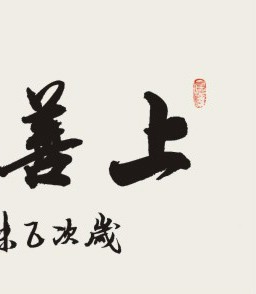 上善
歲次乙未